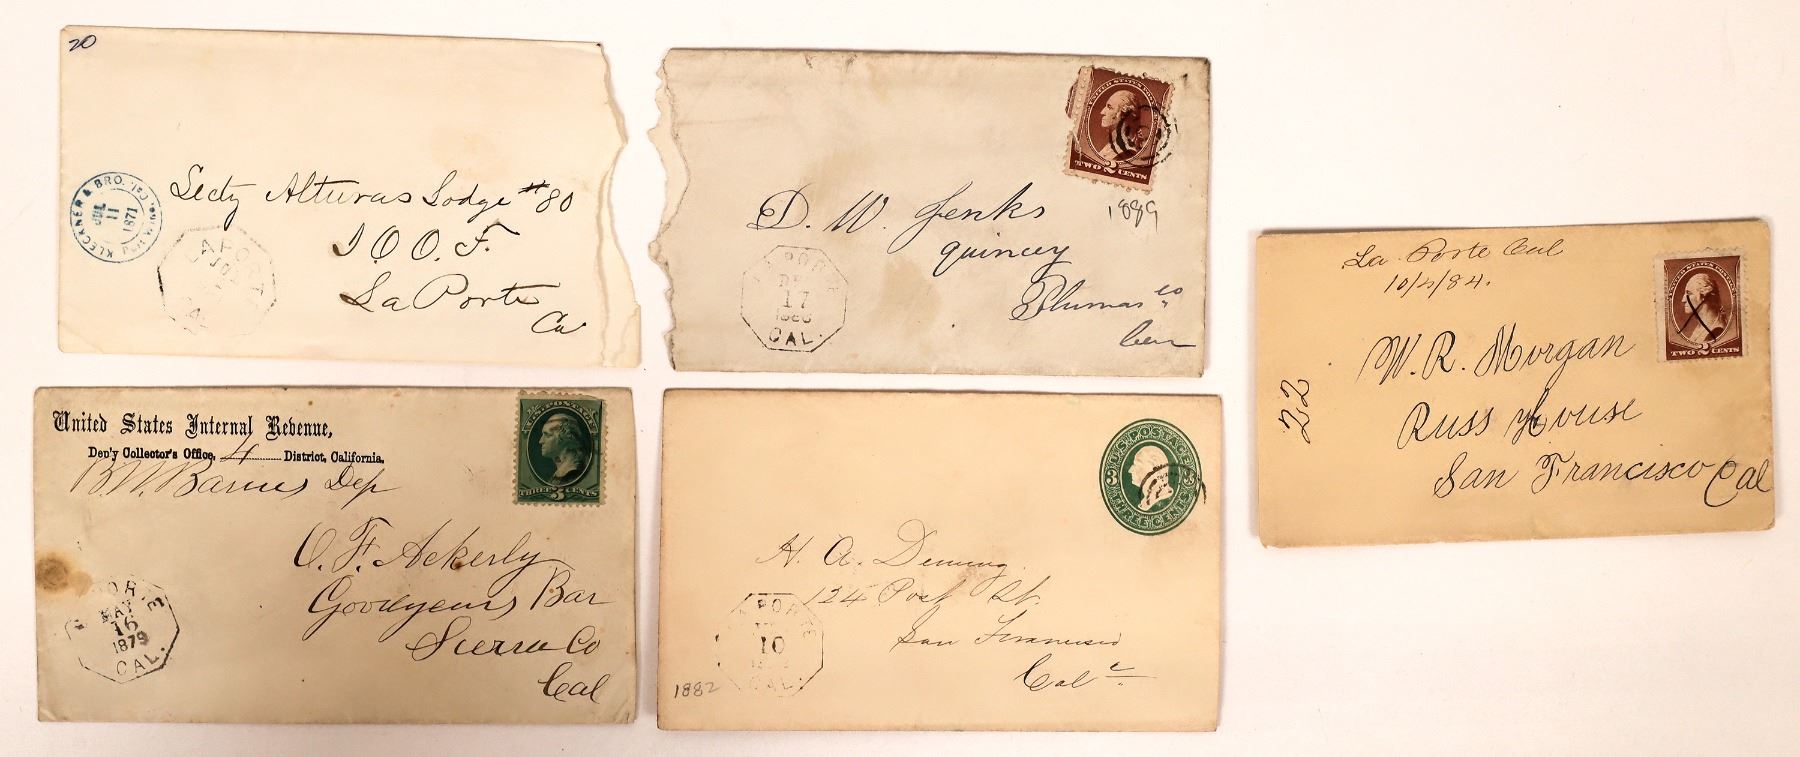 20
KLECKNER & BRO.
JUL
11
1871
Secty Alturas Lodge #80
I.O.O.F.
La Porte
Ca
LAPORTE
UNITED STATES POSTAGE
TWO 2 CENTS
1889
D. W. Jenks
Quincey
Plumas Co
LA PORTE
DEC
17
CAL.
United States Internal Revenue,
Dep'y Collector's Office, 4 District, California.
B. W. Barnes Dep
U.S. POSTAGE
THREE 3 CENTS
O. F. Ackerly
Goodyears Bar
Sierra Co
Cal
LA PORTE
MAY
16
1879
CAL.
U.S. POSTAGE
3 3
THREE CENTS
H. A. Deming
124 Post St.
San Francisco
Cal
LA PORTE
10
CAL.
1882
La Porte Cal
UNITED STATES POSTAGE
TWO 2 CENTS
W. R. Morgan
Russ House
San Francisco Cal
22